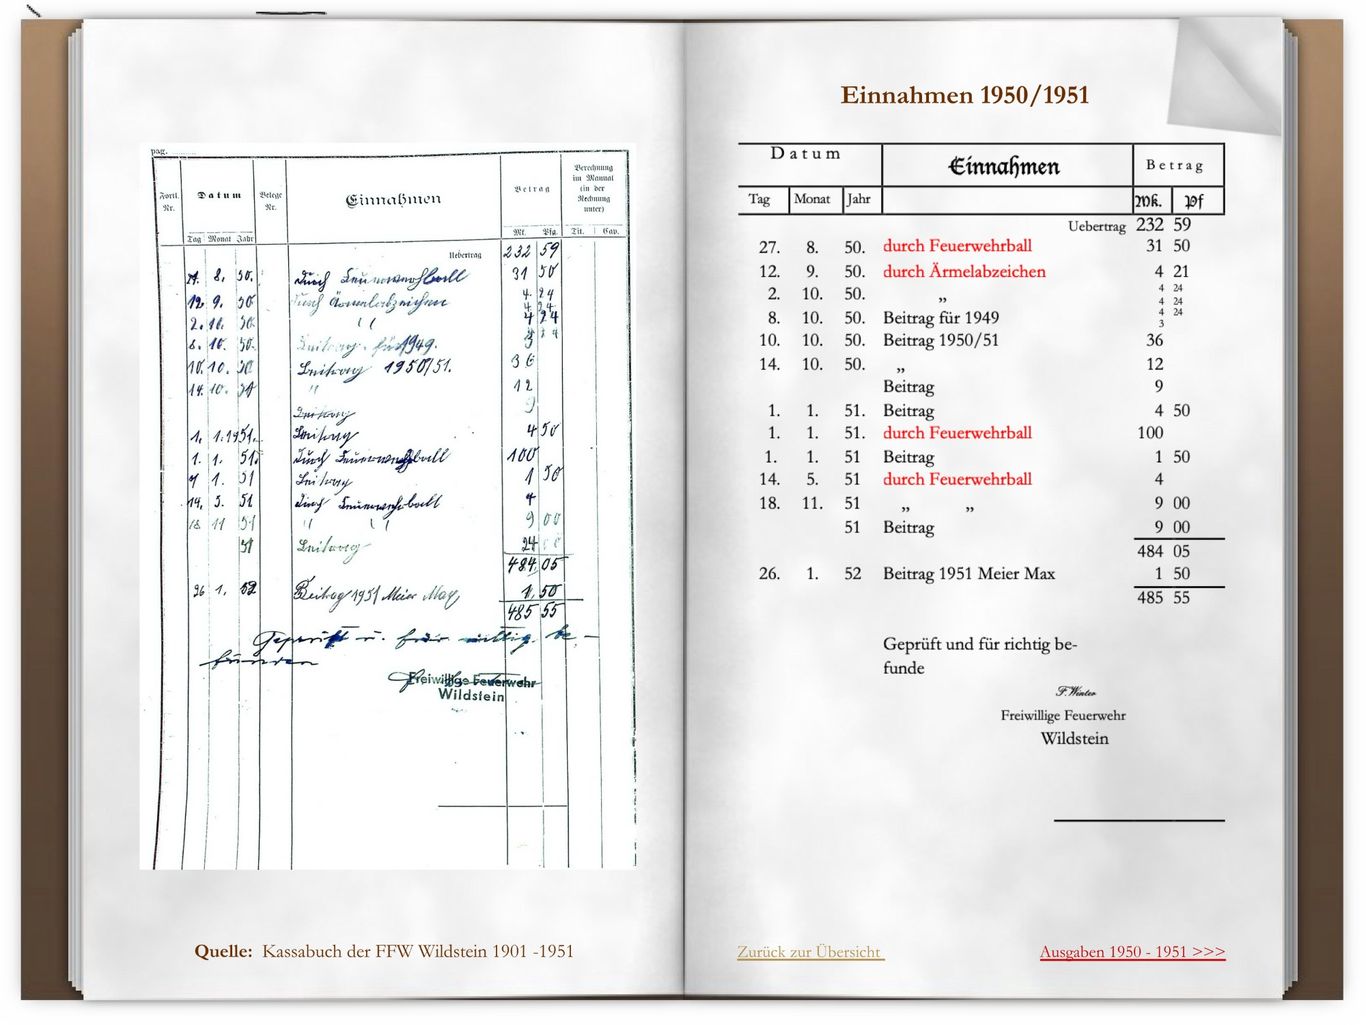 pag.
Fortl. Nr. Datum Belege Nr. Einnahmen Betrag Berechnung im Manual (in der Rechnung unter)
Tag Monat Jahr Mk. Pfg. Tit. Cap.
Uebertrag 232 59
27. 8. 50. durch Feuerwehrball 31 50
12. 9. 50. durch Ärmelabzeichen 4. 24
4 24
2. 10. 50. " 4 24
4 24
8. 10. 50. Beitrag für 1949. 3
10. 10. 50 Beitrag 1950/51. 36
14. 10. 50 " 12
Beitrag 9
1. 1. 1951. Beitrag 4 50
1. 1. 51. durch Feuerwehrball 100
1. 51 Beitrag 1 50
14. 5. 51 durch Feuerwehrball 4
18. 11 51 " " 9 00
51 Beitrag 24 00
484.05
26 1. 52 Beitrag 1951 Meier Max 1.50
485 55
Geprüft u. für richtig be-
funden
Freiwillige Feuerwehr
Wildstein
Quelle: Kassabuch der FFW Wildstein 1901 -1951
Einnahmen 1950/1951
Datum Einnahmen Betrag
Tag Monat Jahr Mk. Pf
Uebertrag 232 59
27. 8. 50. durch Feuerwehrball 31 50
12. 9. 50. durch Ärmelabzeichen 4 21
2. 10. 50. „ 4 24
4 24
8. 10. 50. Beitrag für 1949 4 24
3
10. 10. 50. Beitrag 1950/51 36
14. 10. 50. „ 12
Beitrag 9
1. 1. 51. Beitrag 4 50
1. 1. 51. durch Feuerwehrball 100
1. 1. 51 Beitrag 1 50
14. 5. 51 durch Feuerwehrball 4
18. 11. 51 „ „ 9 00
51 Beitrag 9 00
484 05
26. 1. 52 Beitrag 1951 Meier Max 1 50
485 55
Geprüft und für richtig be-
funde
F. Winter
Freiwillige Feuerwehr
Wildstein
Zurück zur Übersicht
Ausgaben 1950 - 1951 >>>